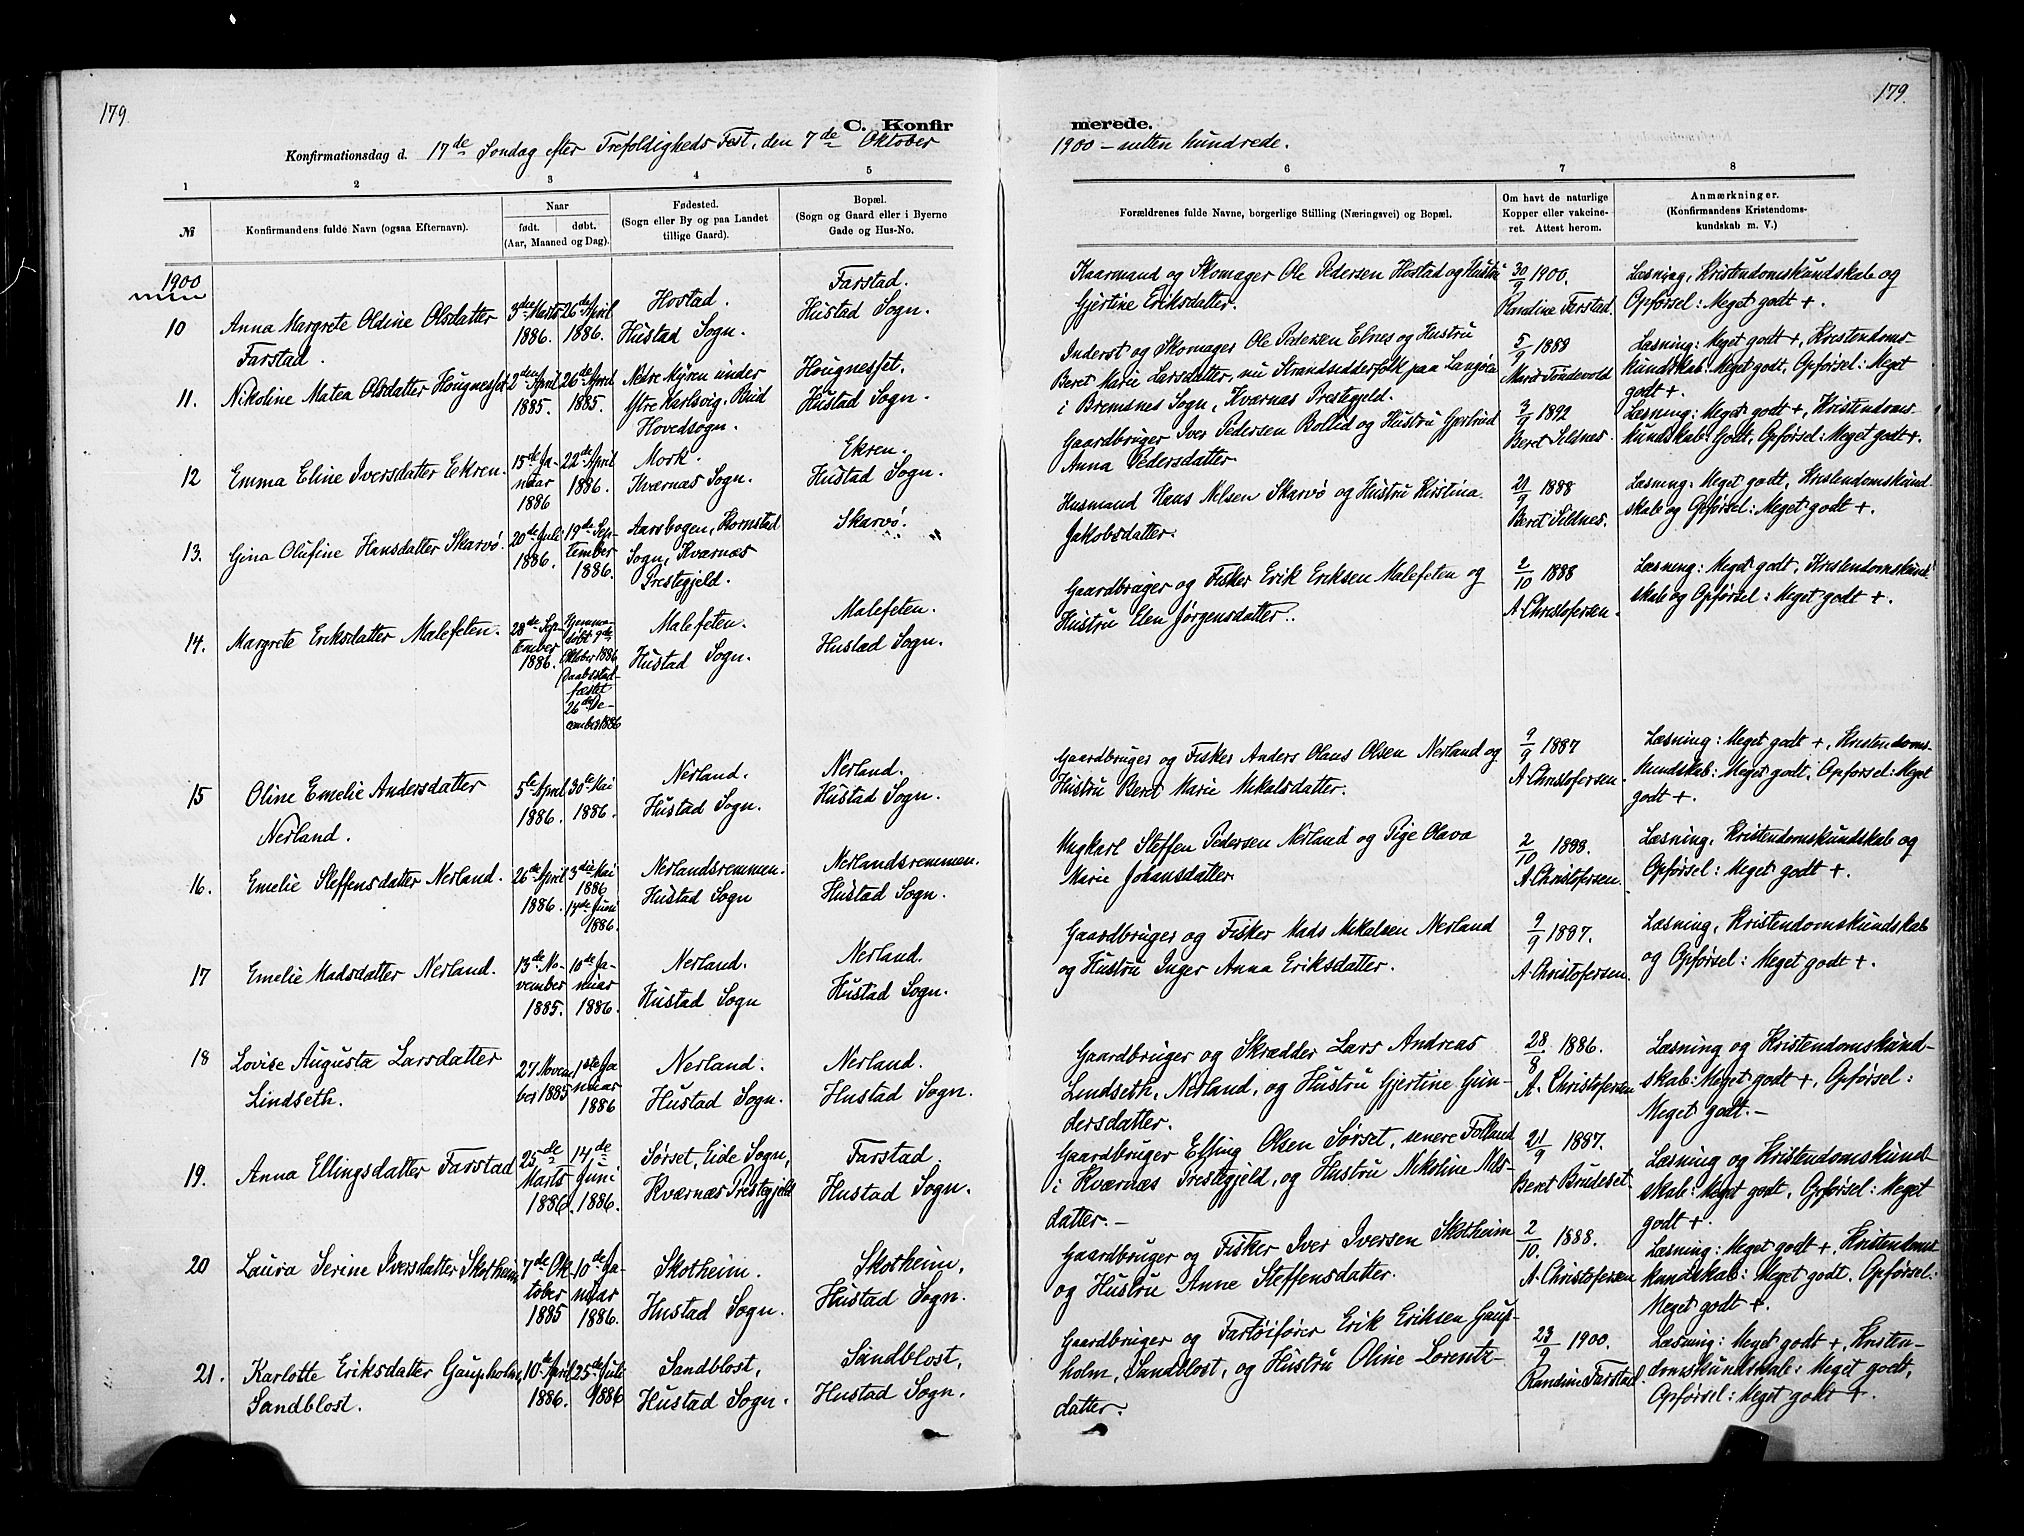 179.
179.
C. Konfirmerede.
Konfirmationsdag d. 17de Søndag efter Trefoldigheds Fest, den 7de Oktober 1900 – nitten hundrede.
1 2 3 4 5 6 7 8
№
Konfirmandens fulde Navn (ogsaa Efternavn).
Naar
født. døbt.
(Aar, Maaned og Dag).
Fødested.
(Sogn eller By og paa Landet
tillige Gaard).
Bopæl.
(Sogn og Gaard eller i Byerne
Gade og Hus-No.
Forældrenes fulde Navne, borgerlige Stilling (Næringsvei) og Bopæl.
Om havt de naturlige
Kopper eller vakcine-
ret. Attest herom.
Anmærkninger.
(Konfirmandens Kristendoms-
kundskab m. V.)
1900
10
Anna Margrete Oldine Olsdatter
Farstad.
3die Marts
1886.
26de April
1886.
Hostad.
Hustad Sogn.
Farstad.
Hustad Sogn.
Kaarmand og Skomager Ole Pedersen Hostad og Hustru
Gjertine Eriksdatter.
30/9 1900.
Randine Farstad.
Læsning, Kristendomskundskab og
Opførsel: Meget godt +.
11.
Nikoline Matea Olsdatter Hougnesset
2den April
1885.
26de April
1885.
Nedre Myren under
Ytre Karlsvig. Bud
Hovedsogn.
Hougnesset.
Hustad Sogn.
Inderst og Skomager Ole Pedersen Ebnes og Hustru
Beret Marie Larsdatter, nu Strandsidderfolk paa Langøen
i Bremsnes Sogn, Kværnæs Prestegjeld.
5/9 1888
Marit Tøndevold
Læsning: Meget godt +, Kristendoms
kundskab: Meget godt, Opførsel: Meget
godt +.
12
Emma Eline Iversdatter Eekren.
15de Ja-
nuar
1886
22de April
1886.
Mork.
Kværnæs Sogn.
Ekren.
Hustad Sogn.
Gaardbruger Iver Pedersen Bollid og Hustru Gjertrud
Anna Pedersdatter.
3/9 1892
Beret Sildnæs.
Læsning: Meget godt +, Kristendoms-
kundskab: Godt, Opførsel: Meget godt +.
13.
Gina Olufine Hansdatter Skarvø.
20de Juli
1886.
19de Sep-
tember
1886.
Aarsbogen, Kornstad
Sogn, Kværnæs
Prestegjeld.
Skarvø.
"
Husmand Hans Nilsen Skarvø og Hustru Kirstina
Jakobsdatter.
21/9 1888
Beret Sildnæs.
Læsning: Meget godt, Kristendomskund-
skab og Opførsel: Meget godt +.
14.
Margrete Eriksdatter Malefeten.
28de Sep-
tember
1886.
Hjemme-
døbt 9de
Oktober 1886
Daabsstad-
fæstet
26de De-
cember 1886
Malefeten.
Hustad Sogn.
Malefeten.
Hustad Sogn.
Gaardbruger og Fisker Erik Eriksen Malefeten og
Hustru Elen Jørgensdatter.
2/10 1888
A. Christofersen.
Læsning: Meget godt, Kristendomskund
skab og Opførsel: Meget godt +.
15
Oline Emelie Andersdatter
Nerland.
5te April
1886.
30te Mai
1886.
Nerland.
Hustad Sogn.
Nerland.
Hustad Sogn.
Gaardbruger og Fisker Anders Olaus Olsen Nerland og
Hustru Beret Marie Mikalsdatter.
9/9 1887
A. Christofersen.
Læsning: Meget godt +, Kristendoms-
kundskab: Meget godt, Opførsel: Meget
godt +.
16.
Emelie Steffensdatter Nerland.
26de April
1886.
3die Mai
1886
14de Juni
1886.
Nerlandsremmen.
Hustad Sogn
Nerlandsremmen.
Hustad Sogn.
Ungkarl Steffen Pedersen Nerland og Pige Olava
Marie Johansdatter
2/10 1888.
A. Christofersen.
Læsning, Kristendomskundskab og
Opførsel: Meget godt +.
17
Emelie Madsdatter Nerland.
13de No-
vember
1885.
10de Ja-
nuar
1886.
Nerland.
Hustad Sogn
Nerland.
Hustad Sogn.
Gaardbruger og Fisker Mads Mikalsen Nerland
og Hustru Inger Anna Eriksdatter.
9/9 1897.
A. Christofersen.
Læsning, Kristendomskundskab
og Opførsel: Meget godt +.
18
Lovise Augusta Larsdatter
Lindseth.
27 Novem
ber 1885
1ste Ja
nuar
1886
Nerland.
Hustad Sogn.
Nerland.
Hustad Sogn.
Gaardbruger og Skrædder Lars Andreas
Lindseth, Nerland, og Hustru Gjertine Gun-
dersdatter.
28/8 1886.
A. Christofersen
Læsning og Kristendomskund-
skab: Meget godt +, Opførsel:
Meget godt. –
19.
Anna Ellingsdatter Farstad
25de
Marts
1886.
14de
Juni
1886.
Sørset, Eide Sogn,
Kværnæs Prestegjeld
Farstad.
Hustad Sogn.
Gaardbruger Elling Olsen Sørset, senere Folland
i Kværnæs Prestegjeld, og Hustru Nikoline Nils-
datter. –
21/9 1887.
Beret Brudeset.
Læsning og Kristendomskund-
skab: Meget godt, Opførsel: Meget
godt +.
20
Laura Serine Iversdatter Skotheim
7de Ok
tober
1885
10de Ja-
nuar
1886.
Skotheim.
Hustad Sogn.
Skotheim.
Hustad Sogn.
Gaardbruger og Fisker Iver Iversen Skotheim
og Hustru Anne Steffensdatter.
2/10. 1888.
A. Christofersen
Læsning: Meget godt +, Kristendoms
kundskab: Meget godt, Opførsel:
Meget godt +.
21.
Karlotte Eriksdatter Gaupholm,
Sandblost.
10de April
1886.
25de Juli
1886
Sandblost,
Hustad Sogn.
Sandblost,
Hustad Sogn.
Gaardbruger og Fartøifører Erik Eriksen Gaup-
holm, Sandblost, og Hustru Oline Lorentz-
datter.
23/9 1900.
Randine Farstad
Læsning: Meget godt +, Kristen-
domskundskab: Meget godt,
Opførsel: Meget godt +.